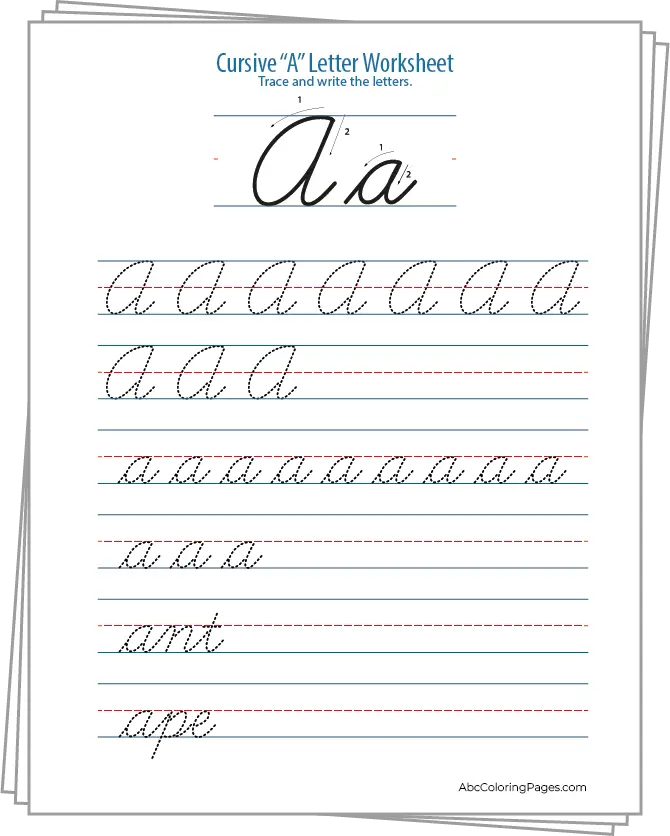 Cursive “A” Letter Worksheet
Trace and write the letters.
1
2
1
2
A a
A A A A A A A
A A A
a a a a a a a a a
a a a
ant
ape
AbcColoringPages.com